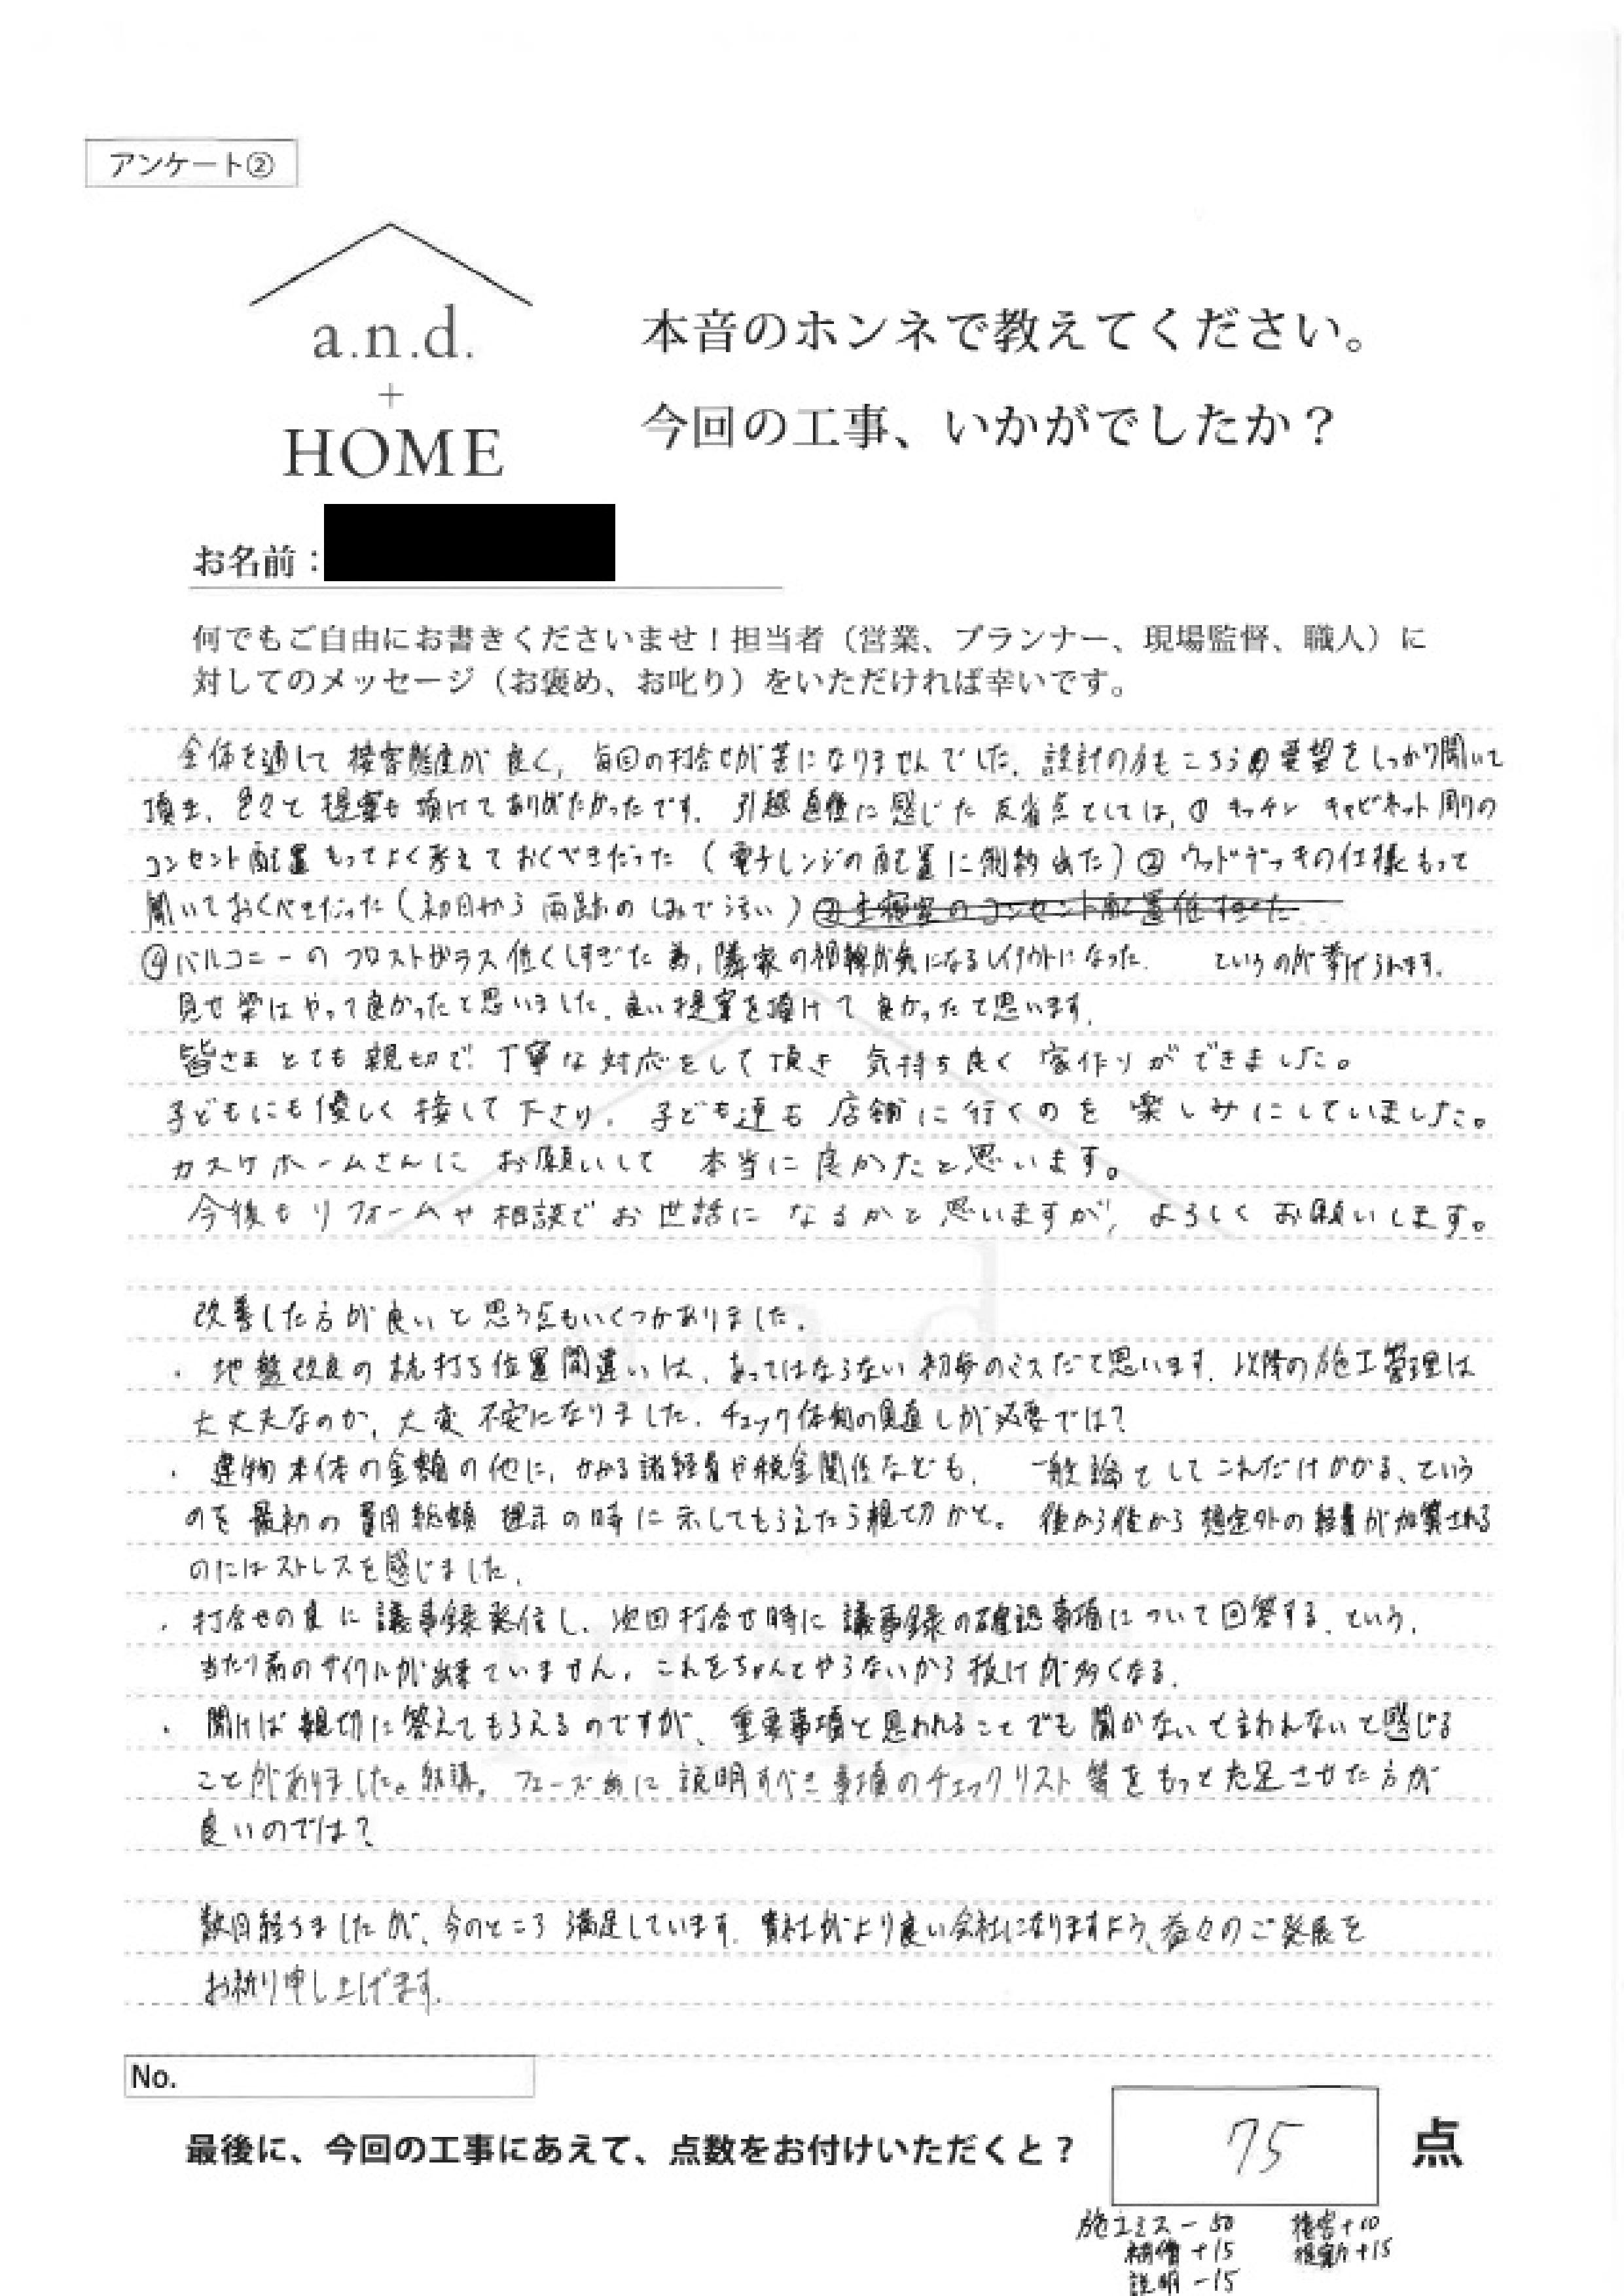 アンケート②
a.n.d.
+
HOME
本音のホンネで教えてください。
今回の工事、いかがでしたか？
お名前：
何でもご自由にお書きくださいませ！担当者（営業、プランナー、現場監督、職人）に
対してのメッセージ（お褒め、お叱り）をいただければ幸いです。
全体を通して接客態度が良く、毎回の打合せが苦になりませんでした。設計の方もこちらの要望をしっかり聞いて
頂き、色々と提案も頂けてありがたかったです。引越直後に感じた反省点としては、① キッチン キャビネット周りの
コンセント配置もっとよく考えておくべきだった（電子レンジの配置に制約出た）② ウッドデッキの仕様もっと
聞いておくべきだった（初日から雨跡のしみでうるい）③主寝室のコンセント配置低すぎた
④バルコニーのフロストガラス低くしすぎた為、隣家の視線が気になるレイアウトになった。 というのが挙げられます。
見せ梁はやって良かったと思いました。良い提案を頂けて良かったと思います。
皆さまとても親切で丁寧な対応をして頂き 気持ち良く 家作りができました。
子どもにも優しく接して下さり、子ども達も店舗に行くのを楽しみにしていました。
カスケホームさんにお願いして 本当に良かたと思います。
今後もリフォームや相談でお世話になるかと思いますが、よろしくお願いします。
改善した方が良いと思う点もいくつかありました。
・地盤改良の杭打ち位置間違いは、あってはならない初歩のミスだと思います。以降の施工管理は
大丈夫なのか、大変不安になりました。チェック体制の見直しが必要では？
・建物本体の金額の他に、かかる諸経費や税金関係なども、一般論としてこれだけかかる、という
のを最初の費用総額提示の時に示してもらえたら親切かと。後から後から想定外の経費が加算される
のにはストレスを感じました。
・打合せの度に議事録発信し、次回打合せ時に議事録の確認事項について回答する、という、
当たり前のサイクルが出来ていません。これをちゃんとやらないから抜けが多くなる。
・聞けば親切に答えてもらえるのですが、重要事項と思われることでも聞かないと言われないと感じる
ことがありました。結構。フェーズ毎に説明すべき事項のチェックリスト等をもっと充足させた方が
良いのでは？
数日経ちましたが、今のところ満足しています。貴社がより良い会社になりますよう、益々のご発展を
お祈り申し上げます。
No.
最後に、今回の工事にあえて、点数をお付けいただくと？ 75 点
施工ミス－50 接客＋10
補償＋15 提案力＋15
説明－15